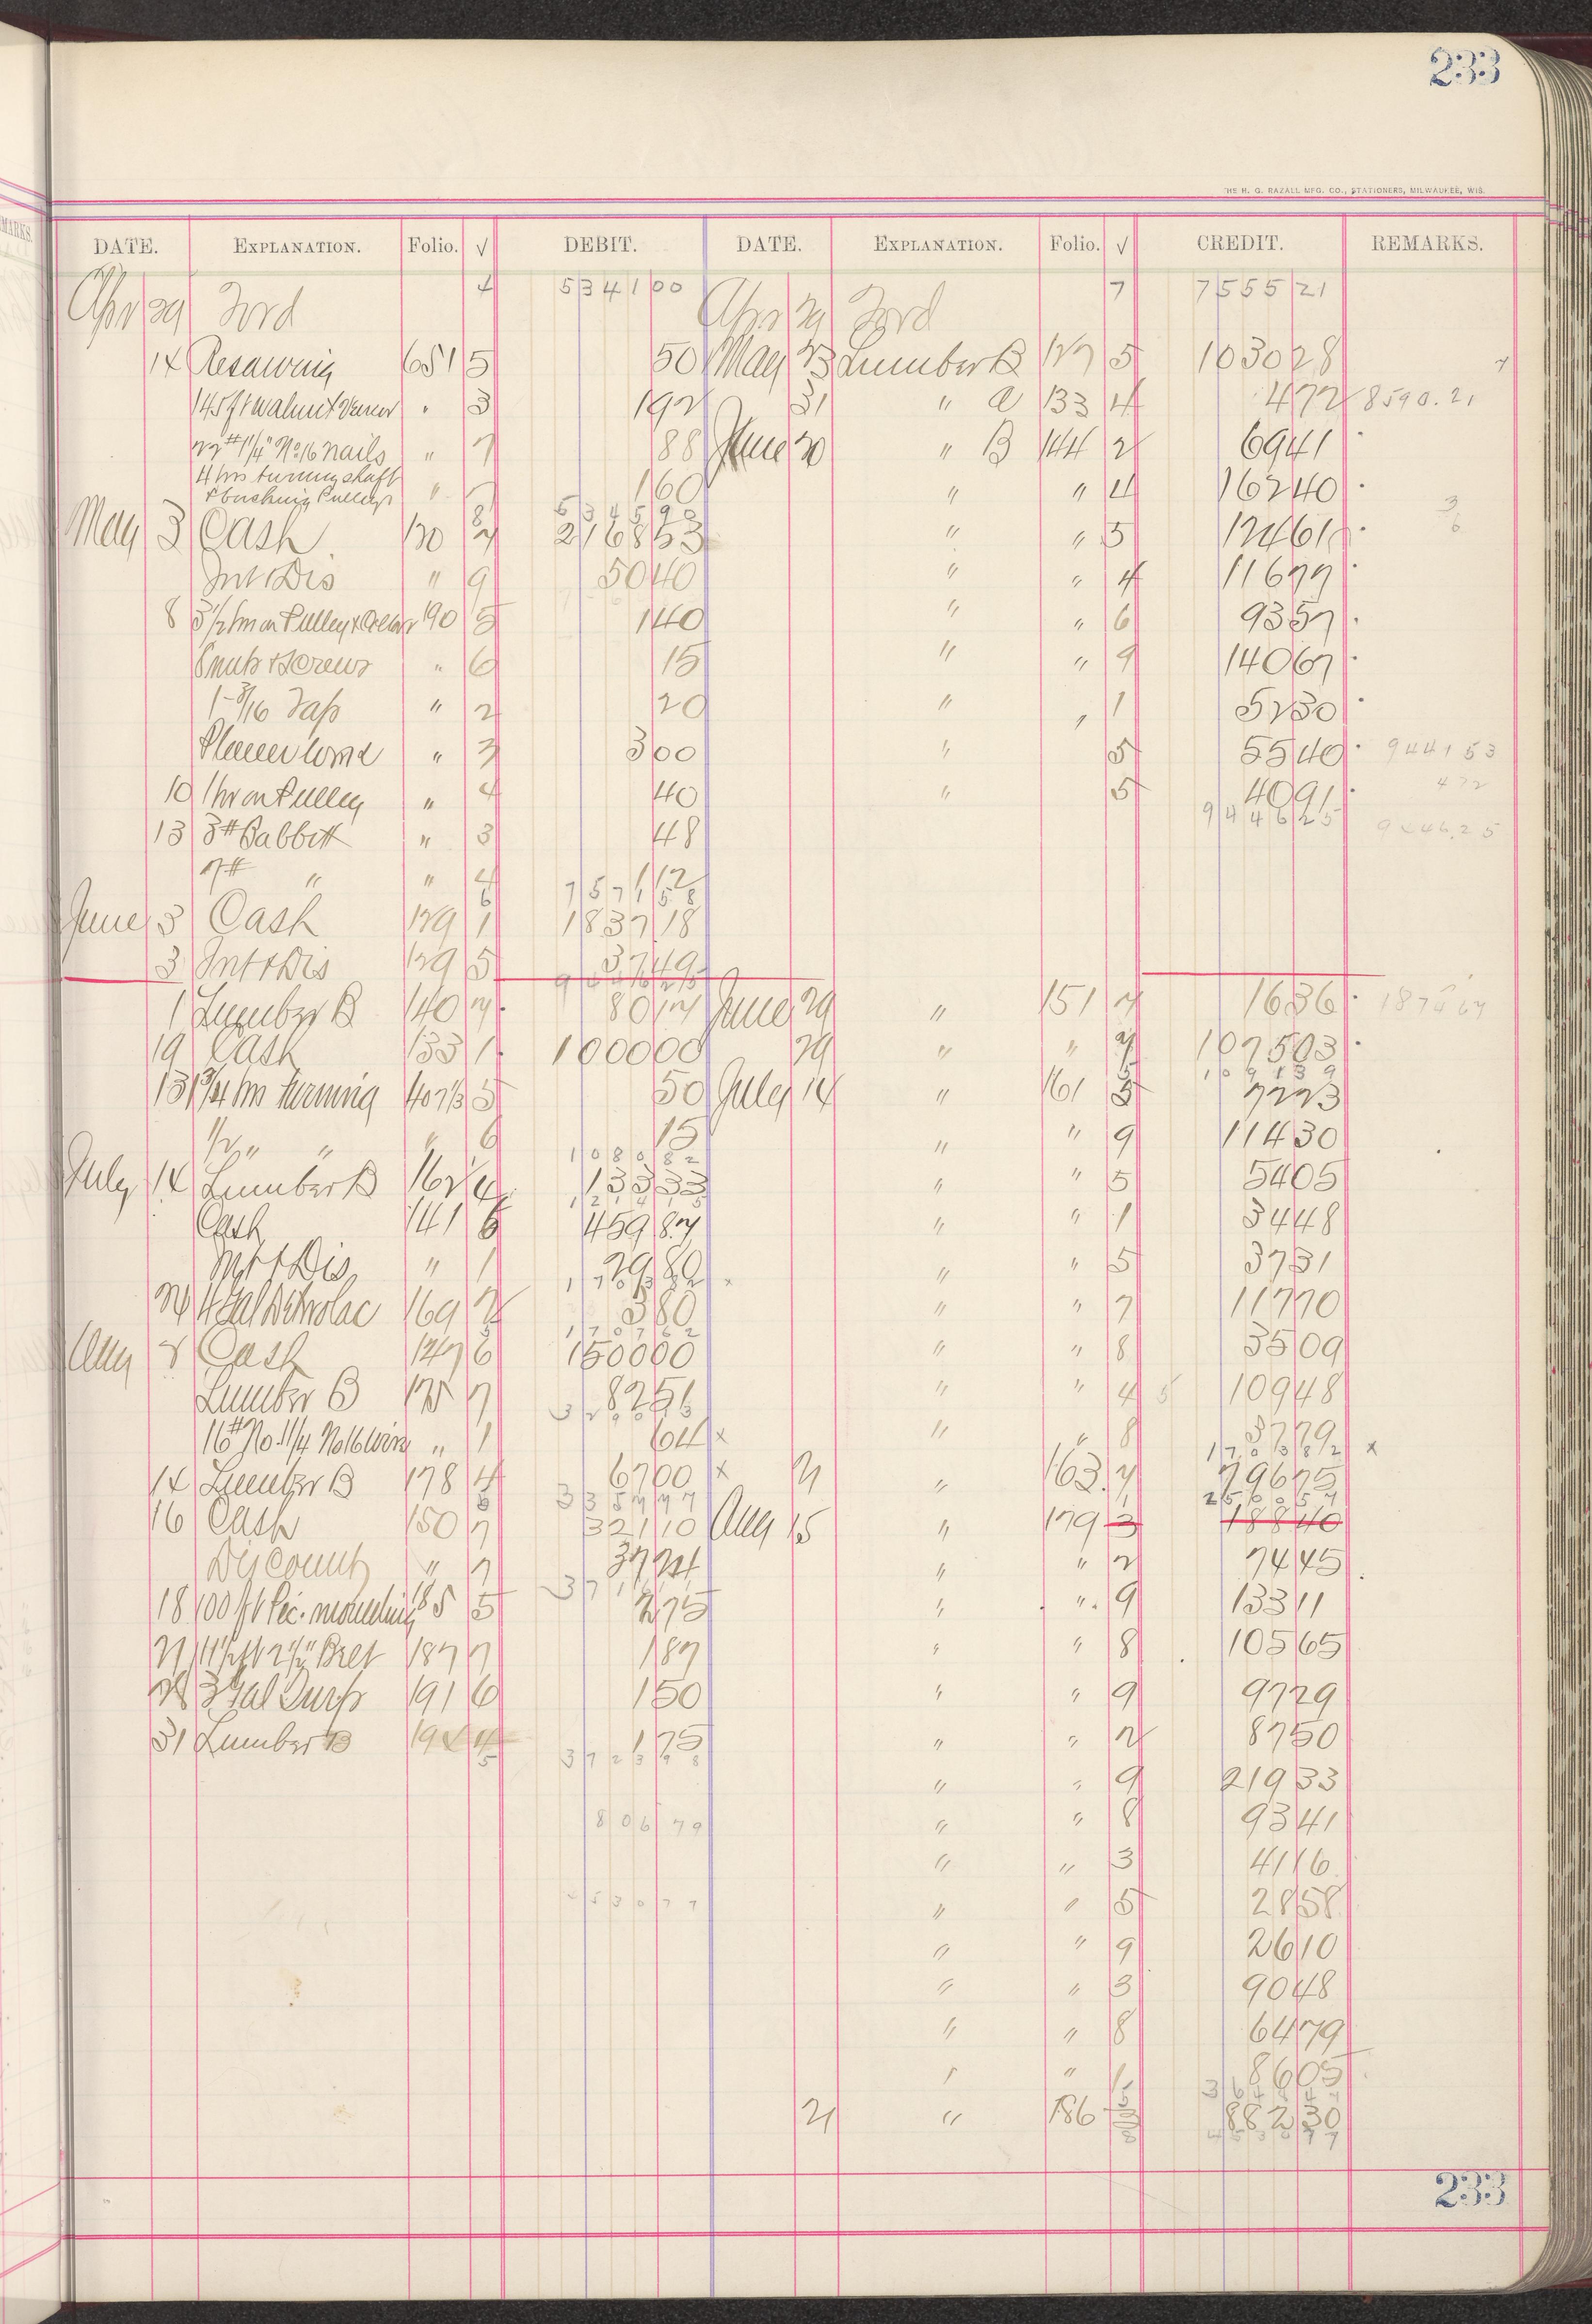 233
THE H. G. RAZALL MFG. CO., STATIONERS, MILWAUKEE, WIS.
DATE. EXPLANATION. Folio. √ DEBIT. DATE. EXPLANATION. Folio. √ CREDIT. REMARKS.
Apr 29 Ford 4 5341 00 Apr 29 Ford 7 7555 21
14 Resawing 651 5 50 May 23 Lumber B 127 5 1030 28
145 ft Walnut Veneer " 3 1 92 31 " a 133 4 4 72 8590.21
#1 1/4" No 16 nails " 7 88 June 20 " B 144 2 69 41
4 hrs turning shaft
& bushing Pulleys " 7 1 60 " " 4 162 40
5345 90
May 3 Cash 120 7 2168 53 " " 5 124 61
Int & Dis " 9 50 40 " " 4 116 77
8 3 1/2 hrs on Pulley & Collar 90 5 1 40 " " 6 93 57
nuts & Screws " 6 15 " " 9 140 67
1-3/16 Tap " 2 20 " " 1 52 30
Planer " 3 3 00 " 5 55 40 9441 53
10 1 hr on Pulley " 4 40 " 5 40 91 4 72
13 3# Babbitt " 3 48 9446 25 9446.25
7# " " 4 1 12
7571 58
June 3 Cash 129 1 1837 18
3 Int & Dis 129 5 37 49
9446 25
1 Lumber B 140 7 80 17 June 29 " 151 7 16 36
19 Cash 133 1 1000 00 29 " " 7 1075 03
1091 39
13 1 3/4 hrs turning 407 1/3 5 50 July 14 " 161 3 72 23
1/2 " " " 6 15 " " 9 114 30
1080 82
July 14 Lumber B 162 4 133 33 " " 5 54 05
1214 15
Cash 141 6 459 87 " " 1 34 48
Int & Dis " 1 29 80 " " 5 37 31
1703 82
4 Gal 169 2 3 80 " " 7 117 70
1707 62
Aug 2 Cash 147 6 1500 00 " " 8 35 09
Lumber B 175 7 82 51 " " 4 5 109 48
16# No. 1 1/4 No 16 Wire " 1 64 x " " 8 37 79
1703 82 x
14 Lumber B 178 4 67 00 x 21 " 163 7 796 75
3357 77 2500 57
16 Cash 150 7 321 10 Aug 15 " 179 3 188 40
Discount " 7 37 24 " " 2 74 45
18 100 ft Pic. moulding 185 5 2 75 " " 9 133 11
21 11 1/2 ft 2 1/2" Belt 187 7 1 87 " " 8 105 65
28 3 Gal Turp 191 6 1 50 " " 9 97 29
31 Lumber B 4 1 75 " " 2 87 50
3723 98
" " 9 219 33
806 79 " " 8 93 41
" " 3 41 16
530 77 " " 5 28 58
" " 9 26 10
" " 3 90 48
" " 8 64 79
" " 1 86 05
21 " 186 882 30
4530 77
233